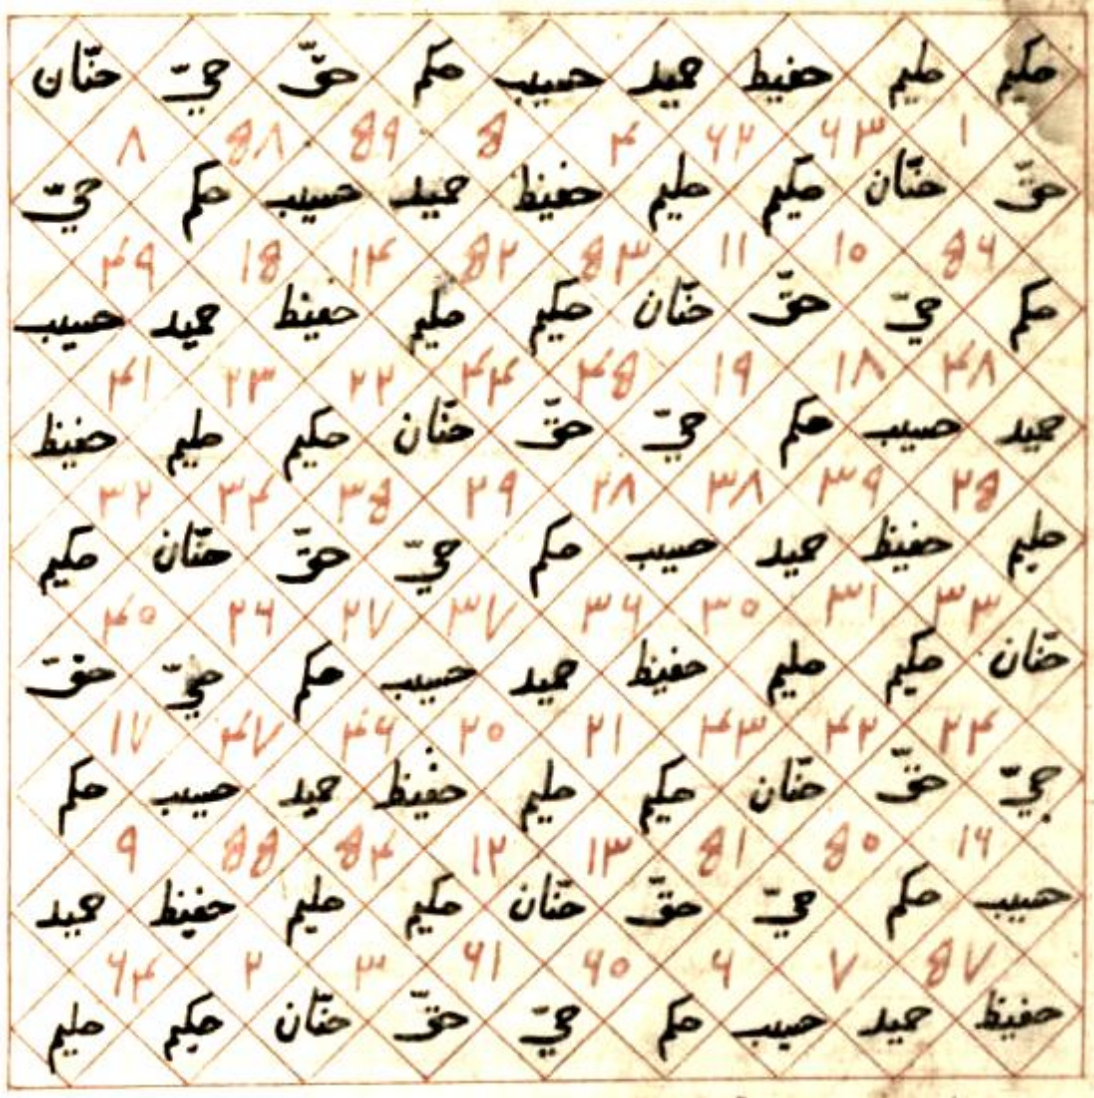 حكيم حليم حفيظ حميد حسيب حكم حقّ حيّ حنّان
۱ ۶۳ ۶۲ ۴ ۵ ۵۹ ۵۸ ۸
حقّ حنّان حكيم حليم حفيظ حميد حسيب حكم حيّ
۵۶ ۱۰ ۱۱ ۵۳ ۵۲ ۱۴ ۱۵ ۴۹
حكم حيّ حقّ حنّان حكيم حليم حفيظ حميد حسيب
۴۸ ۱۸ ۱۹ ۴۵ ۴۴ ۲۲ ۲۳ ۴۱
حميد حسيب حكم حيّ حقّ حنّان حكيم حليم حفيظ
۲۵ ۳۹ ۳۸ ۲۸ ۲۹ ۳۵ ۳۴ ۳۲
حليم حفيظ حميد حسيب حكم حيّ حقّ حنّان حكيم
۳۳ ۳۱ ۳۰ ۳۶ ۳۷ ۲۷ ۲۶ ۴۰
حنّان حكيم حليم حفيظ حميد حسيب حكم حيّ حقّ
۲۴ ۴۲ ۴۳ ۲۱ ۲۰ ۴۶ ۴۷ ۱۷
حيّ حقّ حنّان حكيم حليم حفيظ حميد حسيب حكم
۱۶ ۵۰ ۵۱ ۱۳ ۱۲ ۵۴ ۵۵ ۹
حسيب حكم حيّ حقّ حنّان حكيم حليم حفيظ حميد
۵۷ ۷ ۶ ۶۰ ۶۱ ۳ ۲ ۶۴
حفيظ حميد حسيب حكم حيّ حقّ حنّان حكيم حليم